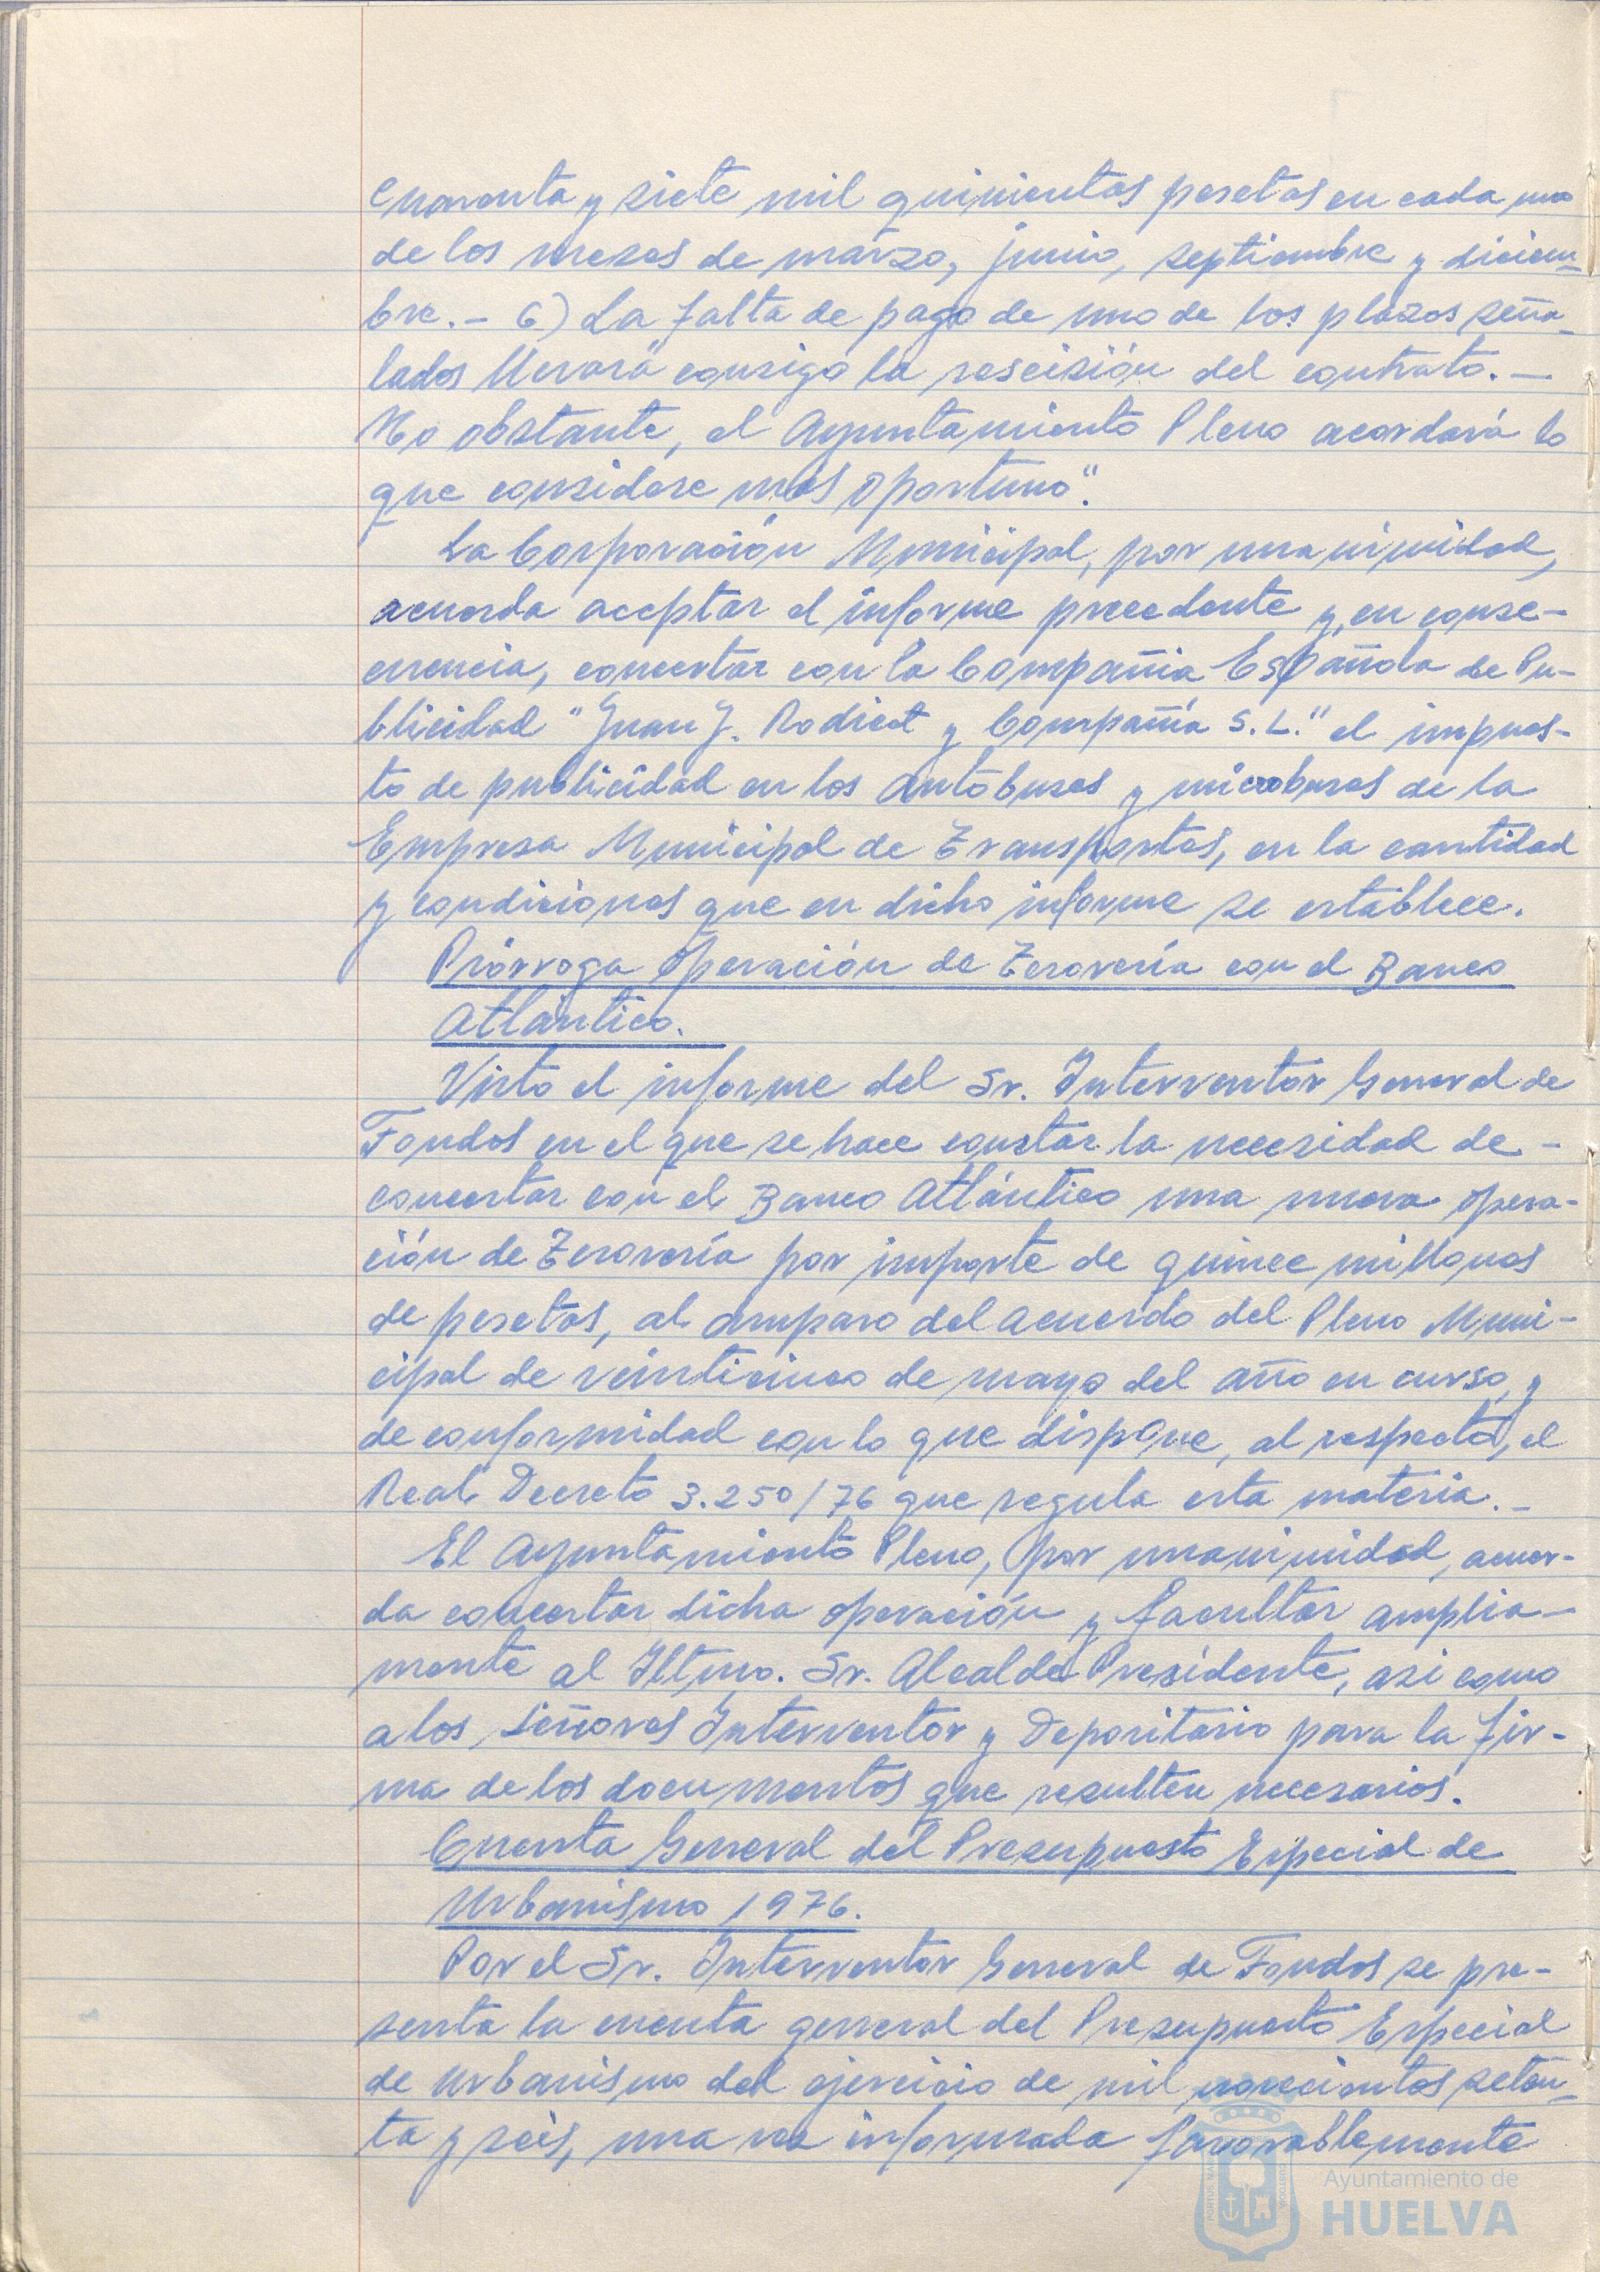 cuarenta y siete mil quinientas pesetas en cada uno
de los meses de marzo, junio, septiembre y diciem-
bre.- 6) La falta de pago de uno de los plazos seña-
lados llevará consigo la rescisión del contrato.-
No obstante, el Ayuntamiento Pleno acordará lo
que considere mas oportuno".
La Corporación Municipal, por unanimidad,
acuerda aceptar el informe precedente y, en conse-
cuencia, concertar con la Compañia Española de Pu-
blicidad "Juan J. Rodicot y Compañía S.L." el impues-
to de publicidad en los autobuses y microbuses de la
Empresa Municipal de Transportes, en la cantidad
y condiciones que en dicho informe se establece.
Prórroga Operación de Tesorería con el Banco
Atlántico.
Visto el informe del Sr. Interventor General de
Fondos en el que se hace constar la necesidad de -
concertar con el Banco Atlántico una nueva opera-
ción de Tesorería por importe de quince millones
de pesetas, al amparo del acuerdo del Pleno Muni-
cipal de veinticinco de mayo del año en curso, y
de conformidad con lo que dispone, al respecto, el
Real Decreto 3.250/76 que regula esta materia.-
El Ayuntamiento Pleno, por unanimidad, acuer-
da concertar dicha operación y facultar amplia-
mente al Iltmo. Sr. Alcalde Presidente, asi como
a los Señores Interventor y Depositario para la fir-
ma de los documentos que resulten necesarios.
Cuenta General del Presupuesto Especial de
Urbanismo 1976.
Por el Sr. Interventor General de Fondos se pre-
senta la cuenta general del Presupuesto Especial
de Urbanismo del ejercicio de mil novecientos seten-
ta y seis, una vez informada favorablemente
Ayuntamiento de
HUELVA